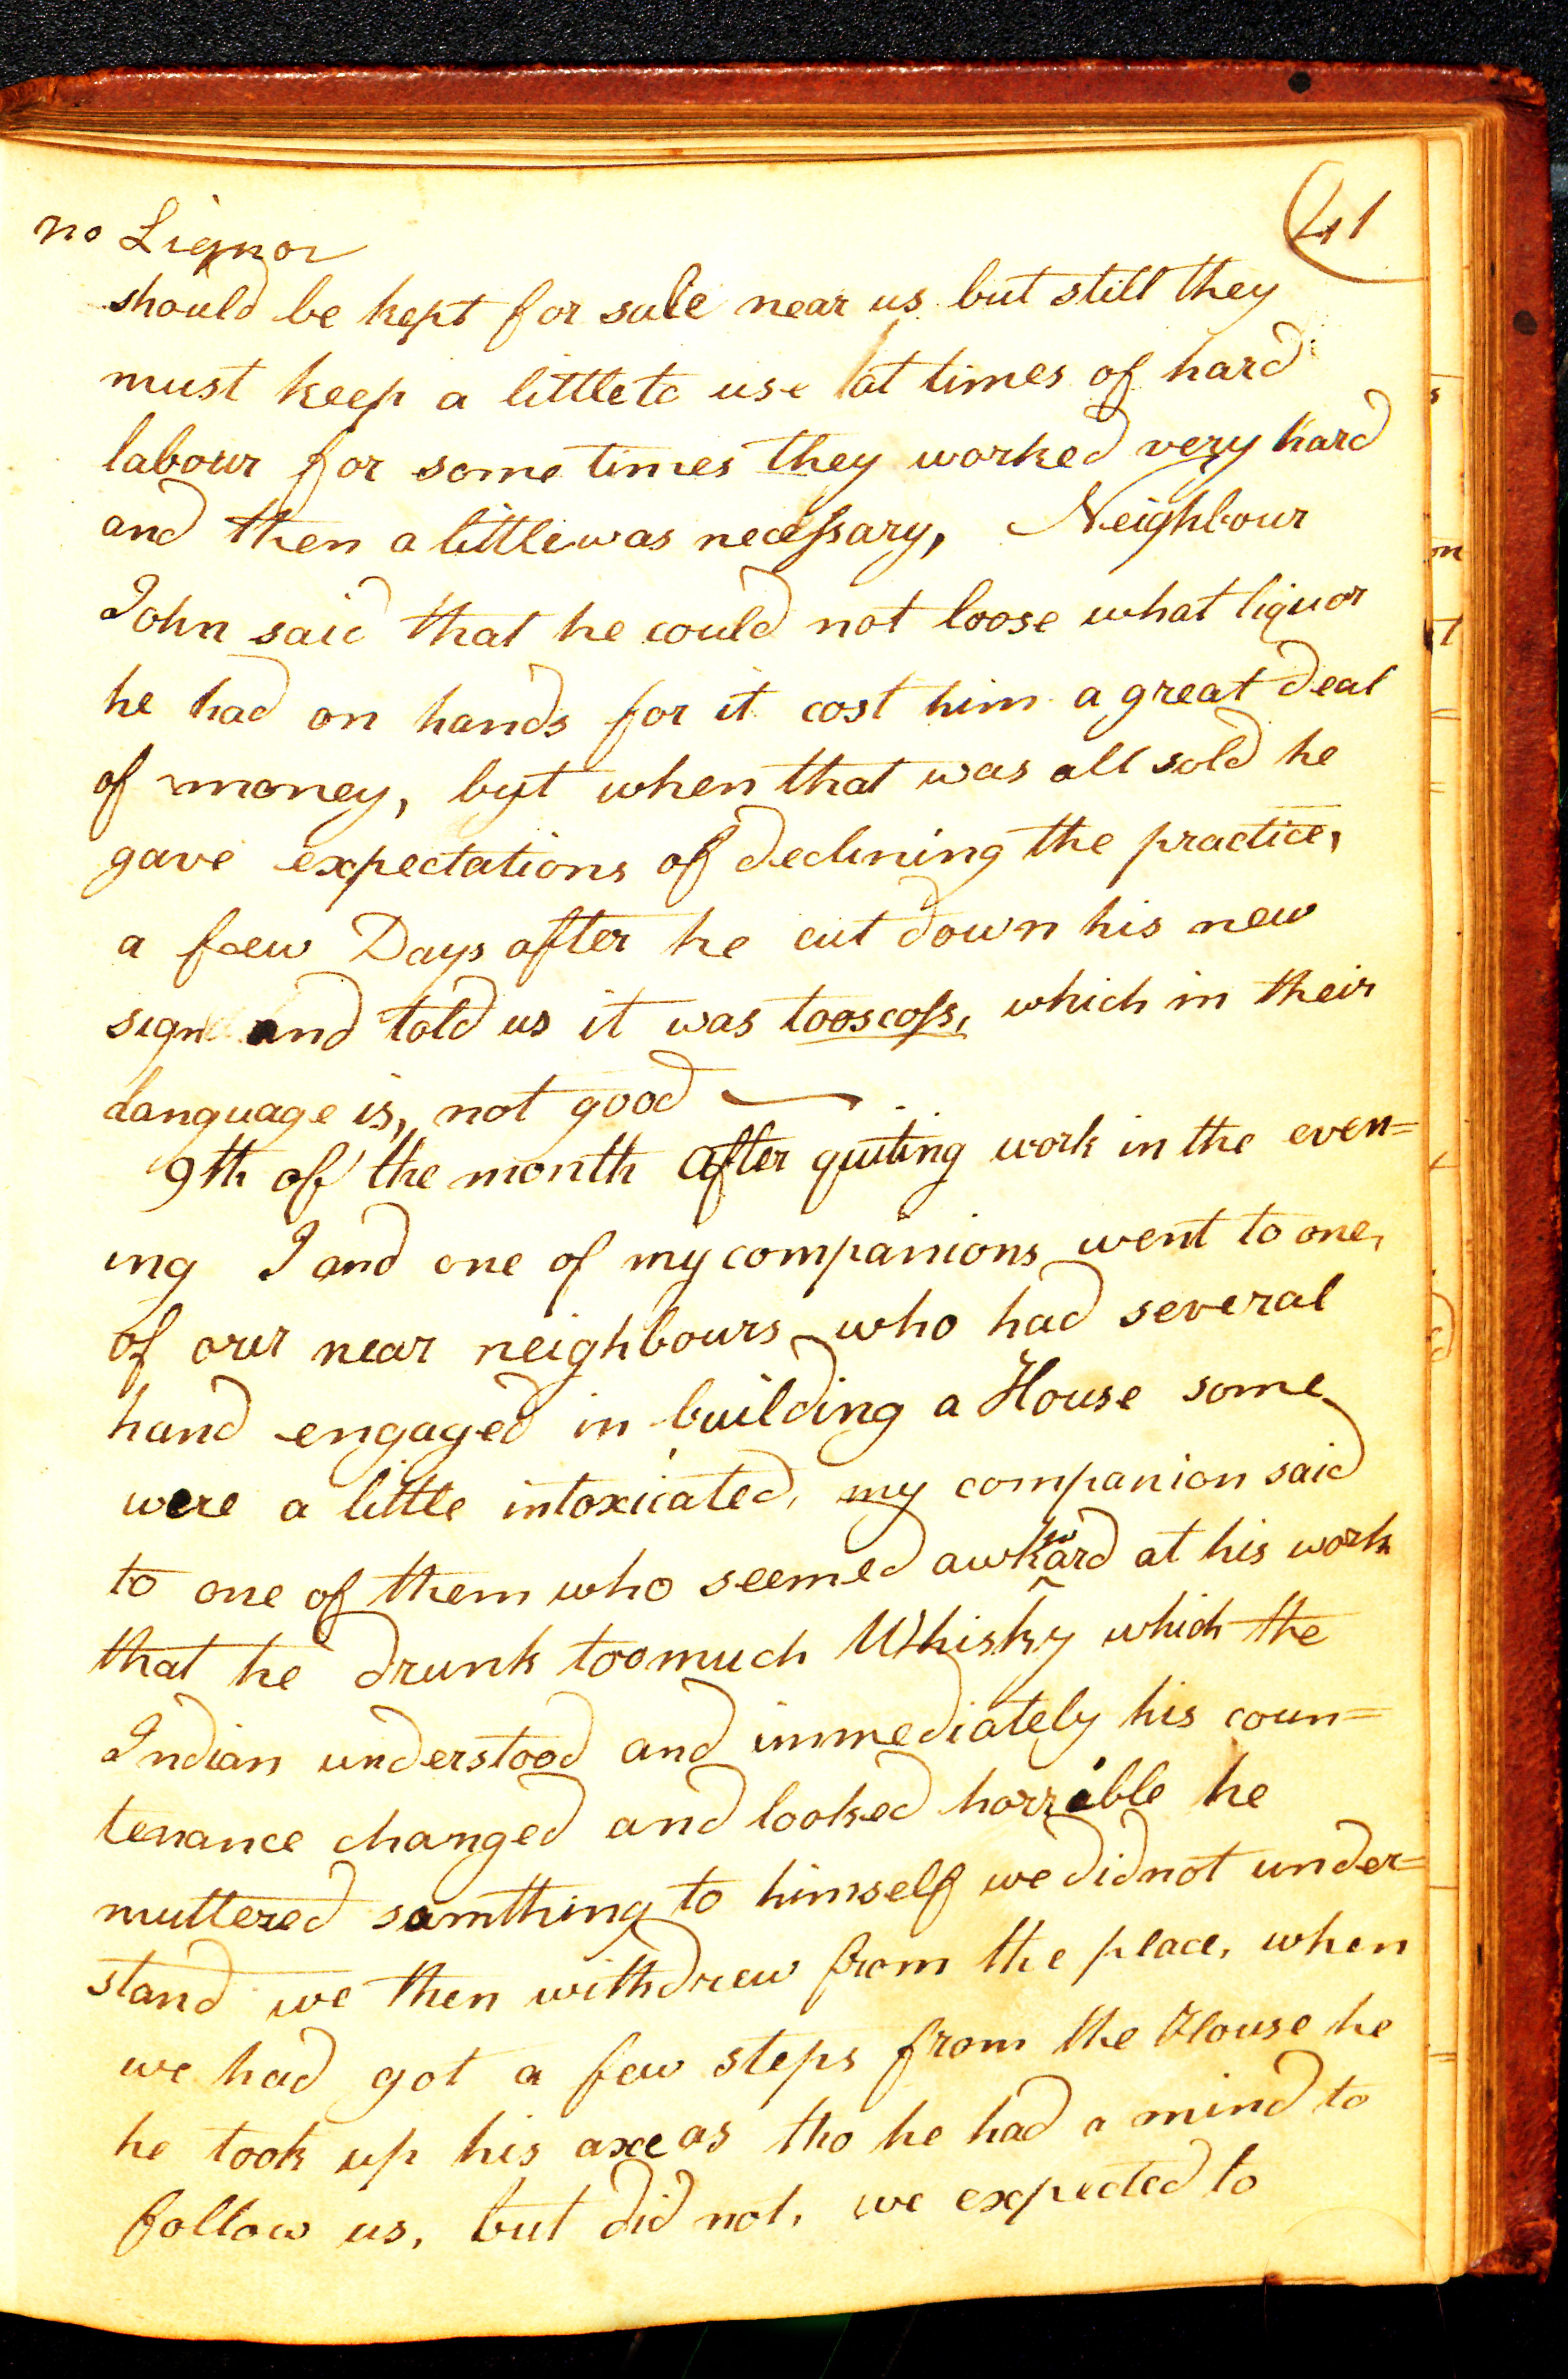 41
no Liquor
should be kept for sale near us but still they
must keep a little to use at times of hard
labour for some times they worked very hard
and then a little was necessary, Neighbour
John said that he could not loose what liquor
he had on hands for it cost him a great deal
of money, but when that was all sold he
gave expectations of declining the practice,
a few Days after he cut down his new
sign and told us it was tooscoss, which in their
language is, not good —
9th of the month after quiting work in the even=
ing I and one of my companions went to one,
of our near neighbours who had several
hand engaged in building a House some
were a little intoxicated, my companion said
to one of them who seemed awkward at his work
that he drunk too much Whisky which the
Indian understood and immediately his coun=
tenance changed and looked horrible he
muttered somthing to himself we did not under=
stand we then withdrew from the place, when
we had got a few steps from the House he
he took up his axe as tho he had a mind to
follow us, but did not, we expected to